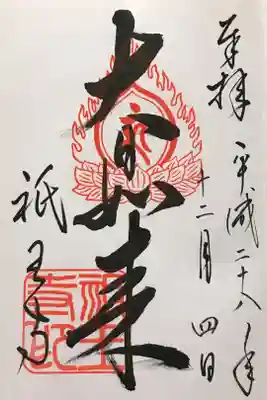 奉拝
平成二十八年
十二月四日
大日如来
祇王寺
祇王寺印